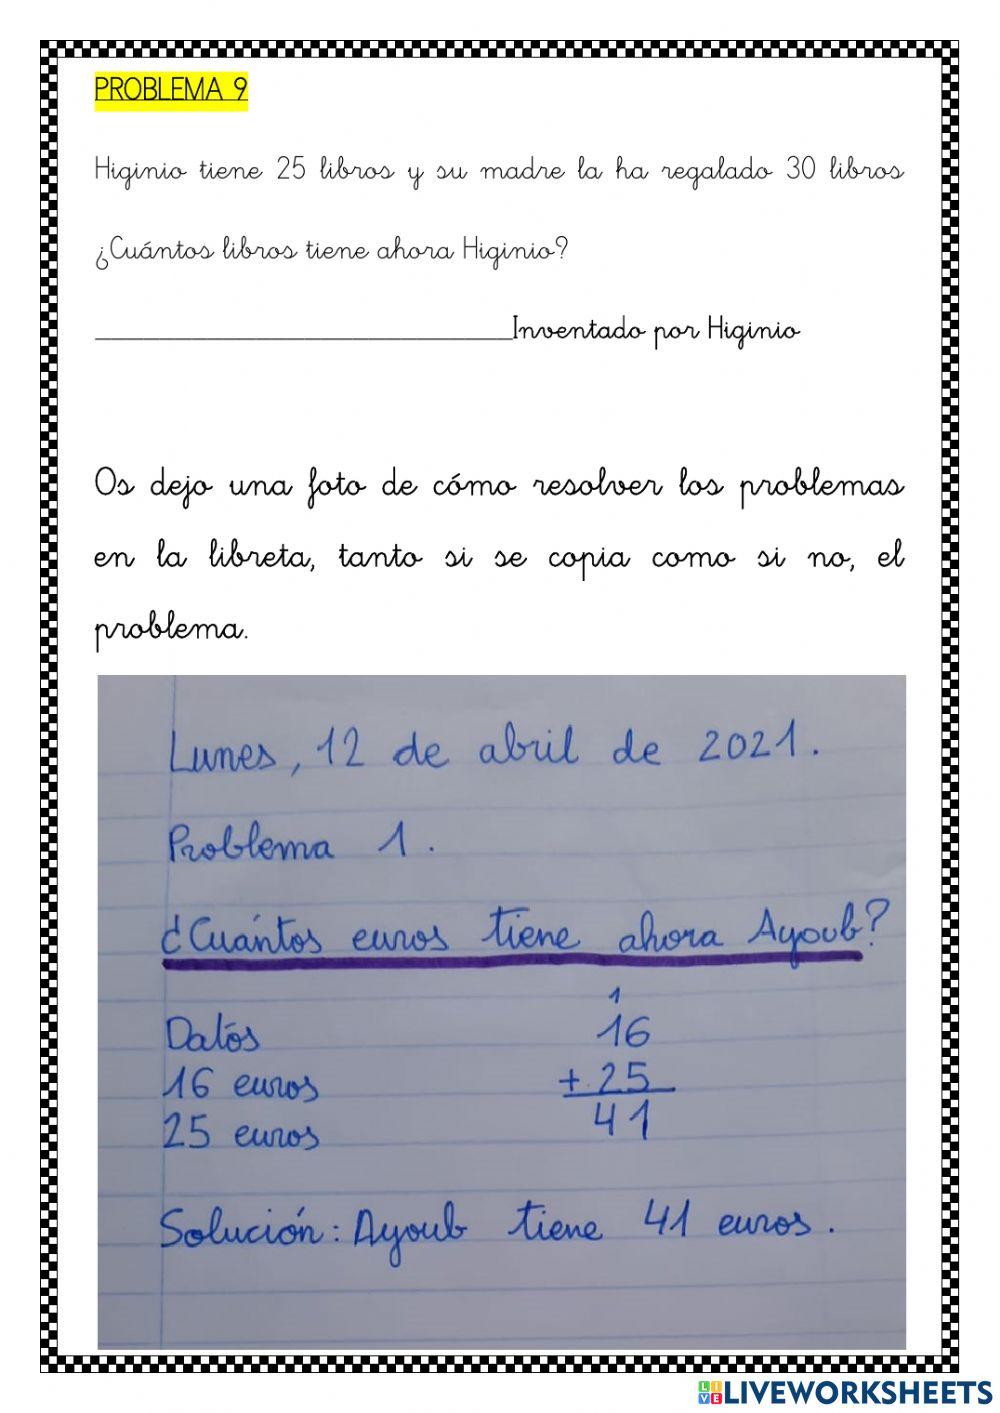 PROBLEMA 9
Higinio tiene 25 libros y su madre la ha regalado 30 libros
¿Cuántos libros tiene ahora Higinio?
______________________________Inventado por Higinio
Os dejo una foto de cómo resolver los problemas
en la libreta, tanto si se copia como si no, el
problema.
Lunes, 12 de abril de 2021.
Problema 1.
¿Cuántos euros tiene ahora Ayoub?
1
Datos 16
16 euros + 25
25 euros 41
Solución: Ayoub tiene 41 euros.
LIVEWORKSHEETS